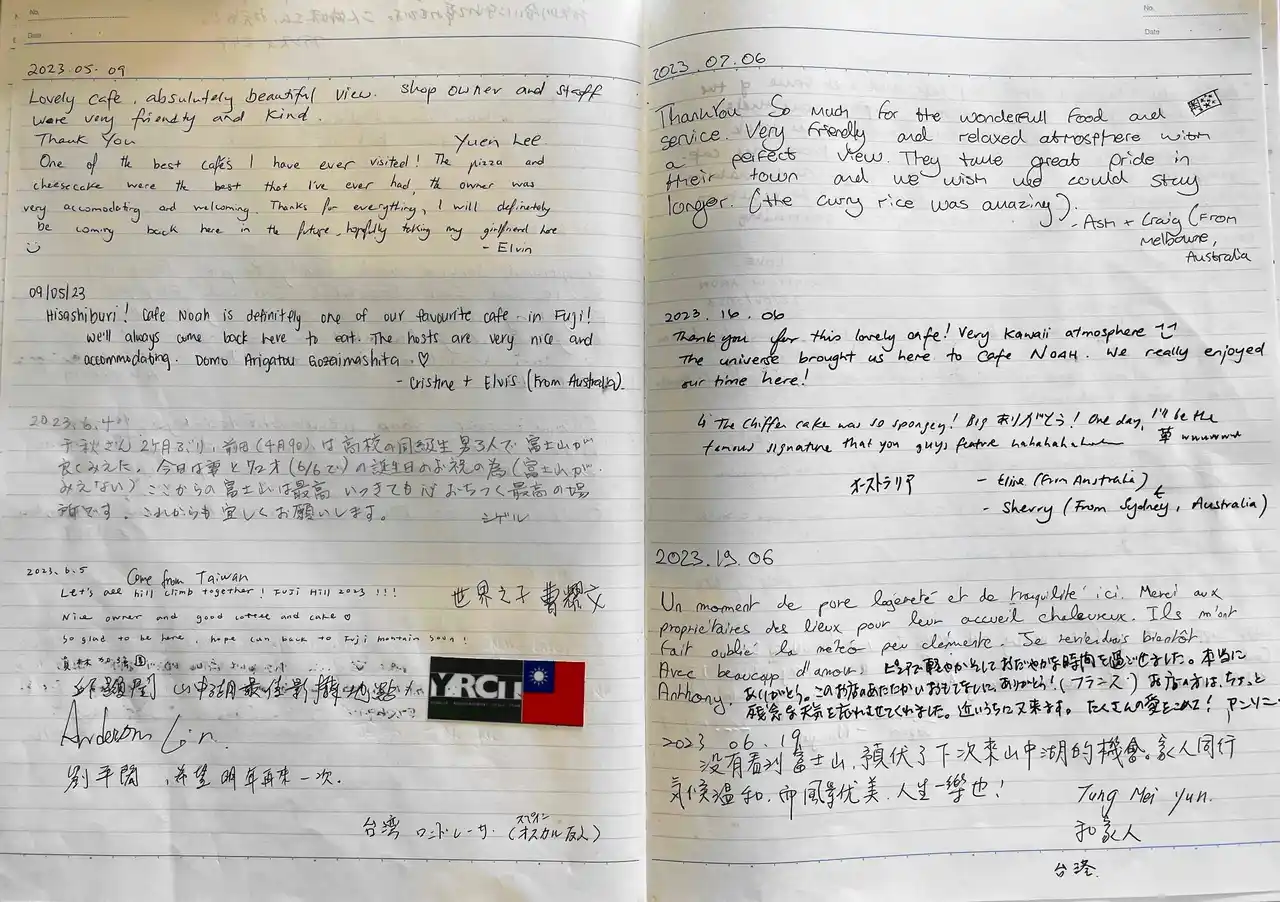 No.
Date
2023.05.09
Lovely cafe, absulutely beautiful view. Shop owner and staff
were very friendly and kind.
Thank You
Yuen Lee
One of the best cafés I have ever visited! The pizza and
cheesecake were the best that I've ever had, the owner was
very accomodating and welcoming. Thanks for everything, I will definetely
be coming back here in the future, hopefully taking my girlfriend here
- Elvin
09/05/23
Hisashiburi! Cafe Noah is definitely one of our favourite cafe in Fuji!
we'll always come back here to eat. The hosts are very nice and
accommodating. Domo Arigatou Gozaimashita. ♡
- Cristine + Elvis (From Australia)
2023.6.4
千秋さん 2ヶ月ぶり、前回(4月9日)は高校の同級生男3人で富士山が
良くみえた。今日は妻と72才(6/6で)の誕生日のお祝の為(富士山が
みえない) ここからの富士山は最高 いつきても心おちつく最高の場
所です。これからも宜しくお願いします。
シゲル
2023.6.5
Come from Taiwan
Let's all hill climb together! Fuji Hill 2023 !!!
Nice owner and good coffee and cake ♡
So glad to be here, hope can back to Fuji montain soon!
世界之子 曹耀文
山中湖最佳影 地點
YARCIT
Anderson Lin.
劉平 ,希望明年再來一次.
台湾 ロードレーサー (オスカル友人)
スペイン
No.
Date
2023.07.06
ThankYou So much for the wonderfull food and
service. Very friendly and relaxed atmosphere with
a perfect view. They take great pride in
their town and we wish we could stay
longer. (the curry rice was amazing).
- Ash + Craig (From
Melbourne,
Australia
2023.16.06
Thank you for this lovely cafe! Very Kawaii atmosphere
The universe brought us here to Cafe NOAH. We really enjoyed
our time here!
↳ The Chiffen cake was so spongey! Big ありがとう! One day, I'll be the
famous signature that you guys feature hahahahaha 草 wwwwww
オーストラリア
- Eline (From Australia)
- Sherry (From Sydney, Australia)
2023.19.06
Un moment de pure légèreté et de tranquilité ici. Merci aux
propriétaires des lieux pour leur accueil chaleureux. Ils m'ont
fait oublié la météo peu clémente. Je reviendrais bientôt.
Avec beaucoup d'amour, ピュアで軽やかそしておだやかな時間を過ごせました。本当に
Anthony. ありがとう。このお店のあたたかいおもてなしに、ありがとう!(フランス) お店の方は、ちょっと
残念な天気を忘れさせてくれました。近いうちに又来ます。たくさんの愛をこめて! アンソニー
2023 06.19
没有看到富士山,預伏了下次來山中湖的機會。家人同行
气候温和,而風景优美,人生一樂也!
Tung Mei Yun.
和家人
台灣